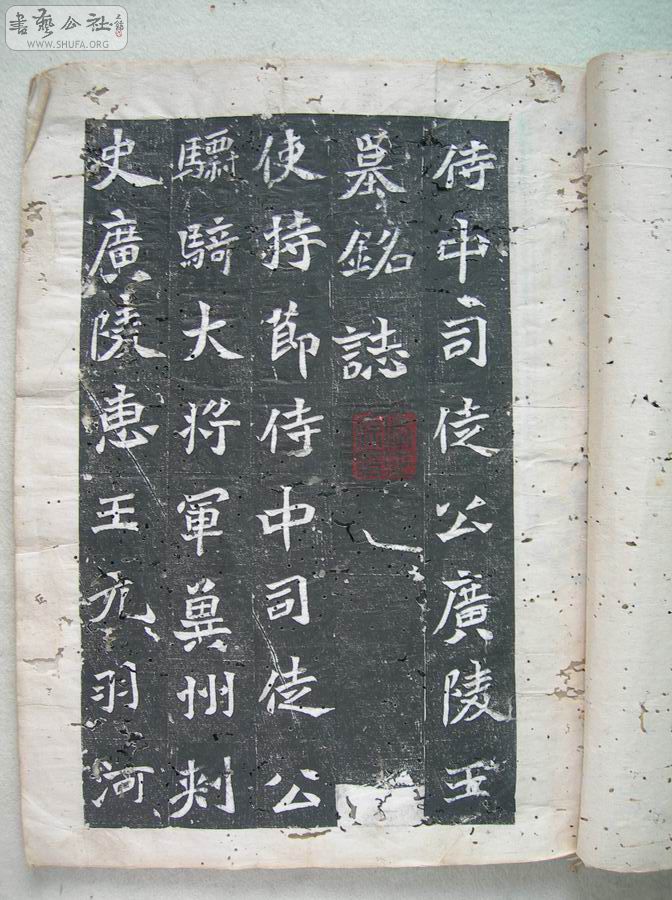 侍中司徒公廣陵王
墓銘誌
使持節侍中司徒公
驃騎大將軍冀州刺
史廣陵惠王元羽河
書藝公社
WWW.SHUFA.ORG